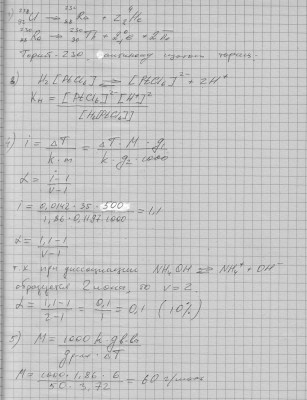 1) ²³⁸U → ²³⁰Ra + 2 ⁴₂He
²³⁰₈₈Ra → ²³⁰₉₀Th + 2 ⁰e +
Торий-230
3) H₂[PtCl₆] ⇌ [PtCl₆]²⁻ + 2H⁺
Kн = [PtCl₆]²⁻[H⁺]² / [H₂[PtCl₆]]
4) i = ΔT / k·m = ΔT·M·g₁ / k·g₂·1000
α = i-1 / v-1
i = 0,0142·35·500 / 1,86·0,1187·1000 = 1,1
α = 1,1-1 / v-1
т.к. при диссоциации NH₄OH ⇌ NH₄⁺ + OH⁻
образуется 2 иона, то v = 2.
α = 1,1-1 / 2-1 = 0,1 / 1 = 0,1 (10%)
5) M = 1000·k·gв-ва / gр-ля·ΔT
M = 1000·1,86·6 / 50·3,72 = 60 г/моль